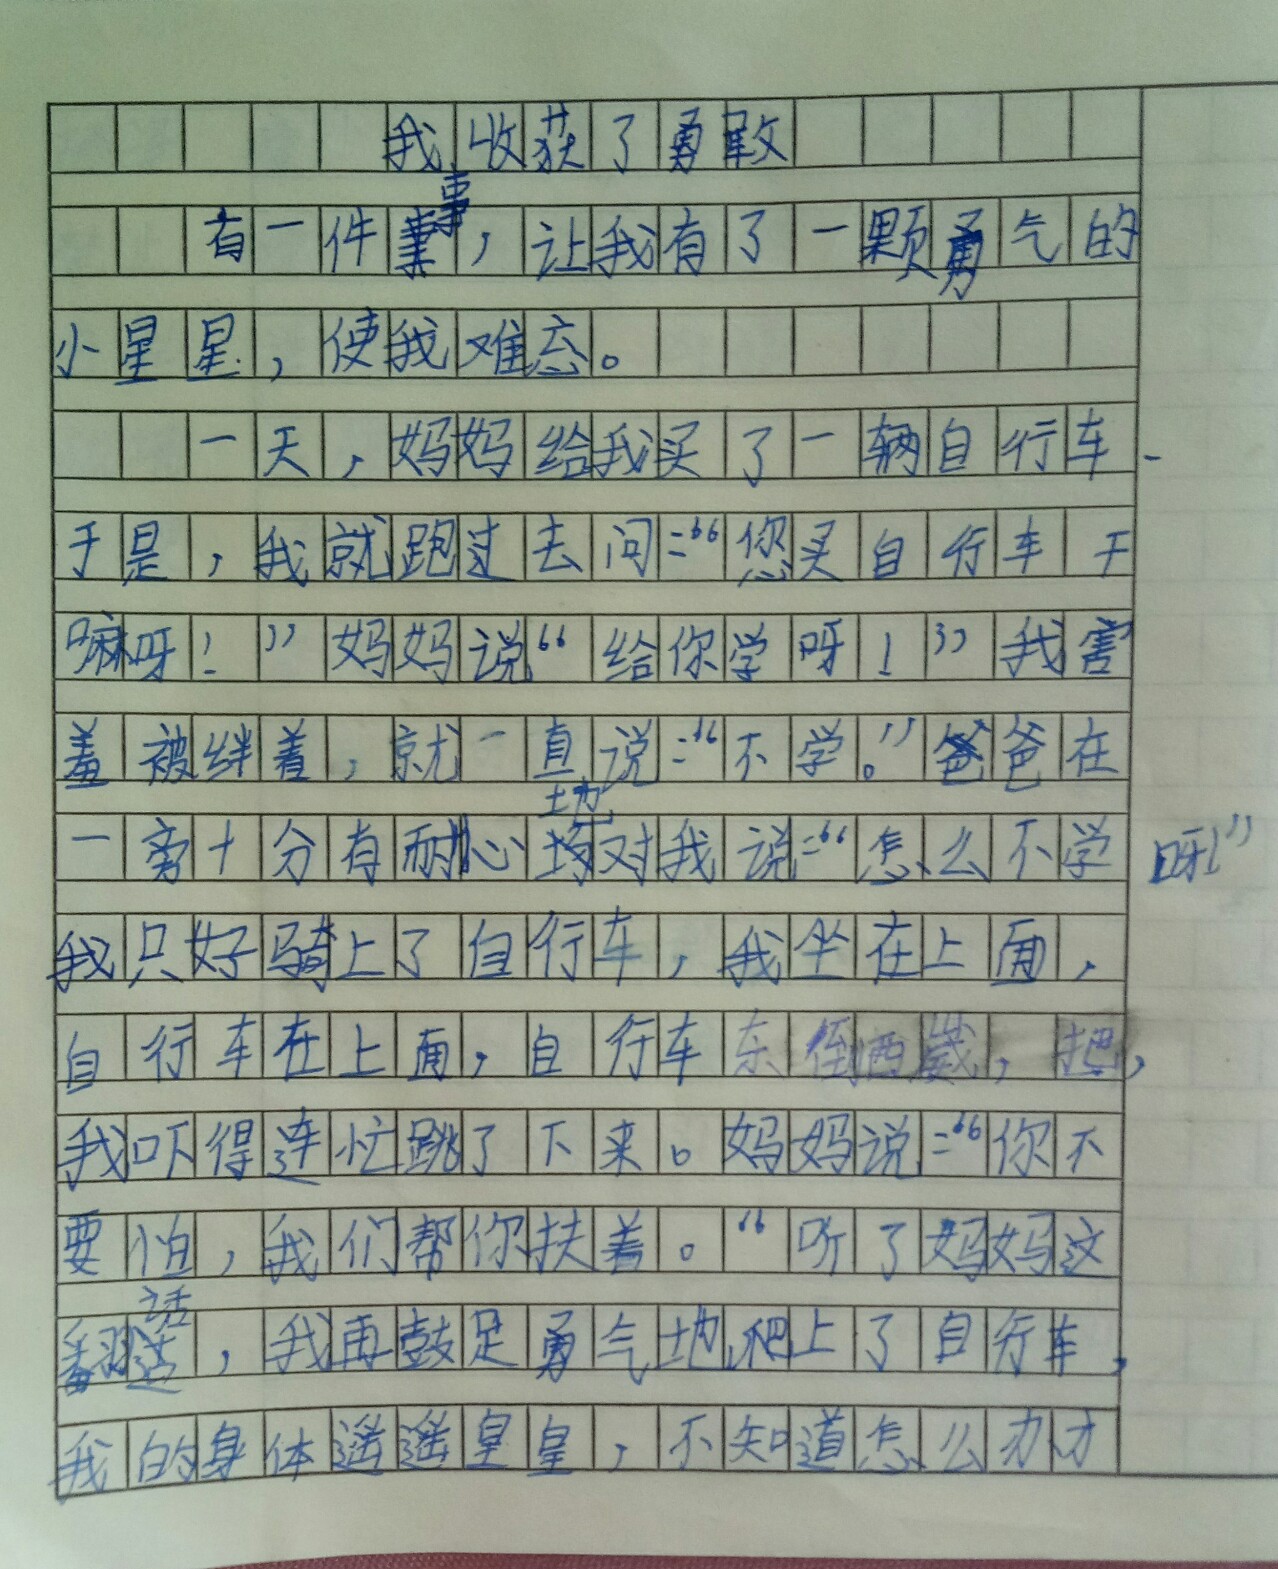 我收获了勇敢
有一件事，让我有了一颗勇气的
小星星，使我难忘。
一天，妈妈给我买了一辆自行车.
于是，我就跑过去问：“您买自行车干
嘛呀！”妈妈说“给你学呀！”我害
羞被绊着，就一直说：“不学。”爸爸在
一旁十分有耐心地对我说：“怎么不学呀！”
我只好骑上了自行车，我坐在上面，
自行车在上面，自行车东倒西歪，把，
我吓得连忙跳了下来。妈妈说：“你不
要怕，我们帮你扶着。“听了妈妈这
翻话，我再鼓足勇气地爬上了自行车，
我的身体遥遥皇皇，不知道怎么办才